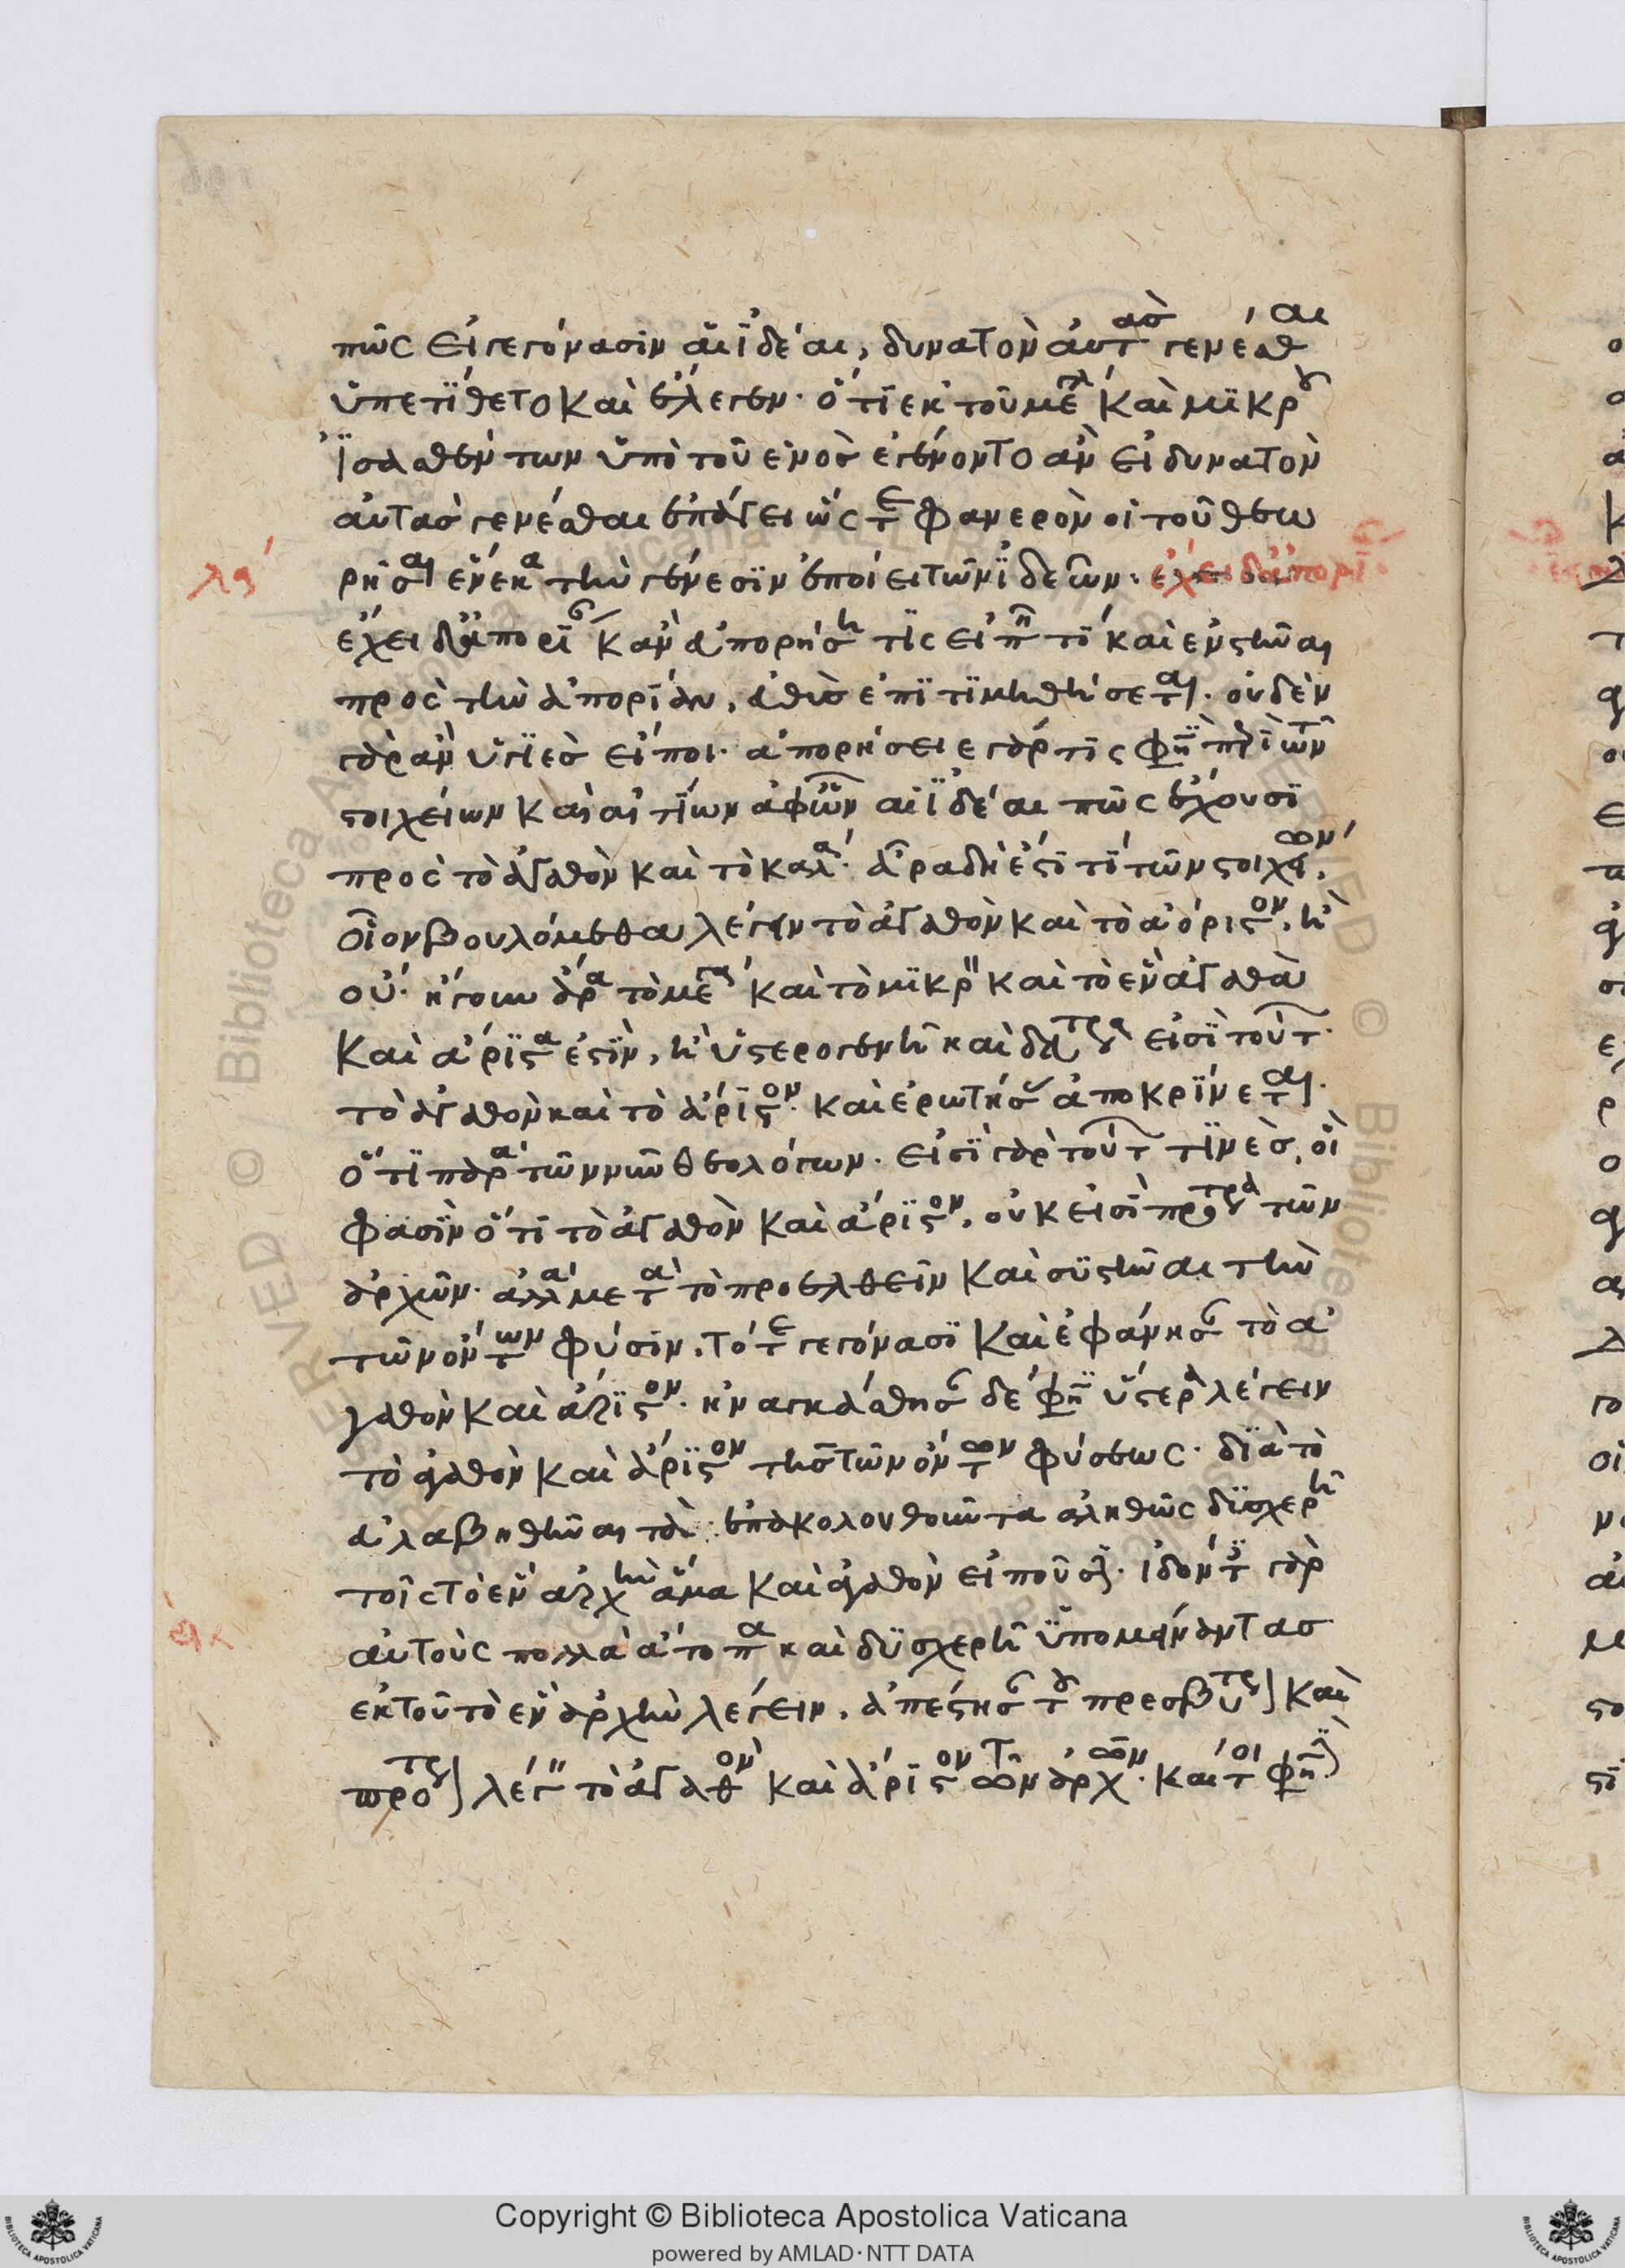 πῶς εἰ γεγόνασιν αἱ ἰδέαι, δυνατὸν αὐτὰς γενέσθαι
ὑπετίθετο καὶ ἔλεγεν· ὅτι ἐκ τοῦ μεγάλου καὶ μικροῦ
ἰσασθέντων ὑπὸ τοῦ ἑνὸς ἐγένοντο ἂν εἰ δυνατὸν
αὐτὰς γενέσθαι ἐπάγει ὥστε φανερὸν ὅτι τοῦ θεω
ρῆσαι ἕνεκα τὴν γένεσιν ἐποίει τῶν ἰδεῶν· ἔχει δ' ἀπορί
λς
ἔχει δ' ἀπορίαν κἂν ἀπορήσῃ τις εἴπῃ τί καὶ ἐνστῆναι
πρὸς τὴν ἀπορίαν, αὖθις ἐπιτιμηθήσεται· οὐδὲν
γὰρ ἂν ὑγιὲς εἴποι· ἀπορήσειε γάρ τις φησὶ περὶ τῶν
στοιχείων καὶ αἰτίων ἀφ' ὧν αἱ ἰδέαι πῶς ἔχουσι
πρὸς τὸ ἀγαθὸν καὶ τὸ καλόν· ἆρα δὴ ἐστί τι τῶν στοιχείων,
οἷον βουλόμεθα λέγειν τὸ ἀγαθὸν καὶ τὸ ἄριστον, ἢ
οὔ· ἤγουν ἆρα τὸ μέγα καὶ τὸ μικρὸν καὶ τὸ ἓν ἀγαθὰ
καὶ ἄριστα ἐστίν, ἢ ὑστερογενῆ καὶ δεύτερα εἰσὶ τούτων
τὸ ἀγαθὸν καὶ τὸ ἄριστον· καὶ ἐρωτήσας ἀποκρίνεται·
ὅτι παρὰ τῶν νῦν θεολόγων· εἰσὶ γὰρ τούτων τινὲς, οἳ
φασὶν ὅτι τὸ ἀγαθὸν καὶ ἄριστον, οὐκ εἰσὶ πρότερα τῶν
ἀρχῶν· ἀλλὰ μετὰ τὸ προελθεῖν καὶ συστῆναι τὴν
τῶν ὄντων φύσιν, τότε γεγόνασι καὶ ἐφάνησαν τὸ ἀ
γαθὸν καὶ ἄριστον· ἠναγκάσθησαν δέ φησιν ὕστερα λέγειν
τὸ ἀγαθὸν καὶ ἄριστον τῆς τῶν ὄντων φύσεως· διὰ τὸ
εὐλαβηθῆναι τὰ ἐπακολουθοῦντα ἀληθῶς δυσχερῆ
τοῖς τὸ ἓν ἀρχὴν ἅμα καὶ ἀγαθὸν εἰποῦσιν· ἰδόντες γὰρ
αὐτοὺς πολλὰ ἄτοπα καὶ δυσχερῆ ὑπομείναντας
ἐκ τοῦ τὸ ἓν ἀρχὴν λέγειν, ἀπέστησαν τοῦ πρεσβύτερον καὶ
πρότερον λέγειν τὸ ἀγαθὸν καὶ ἄριστον τῶν ἀρχῶν· καίτοι φησὶν